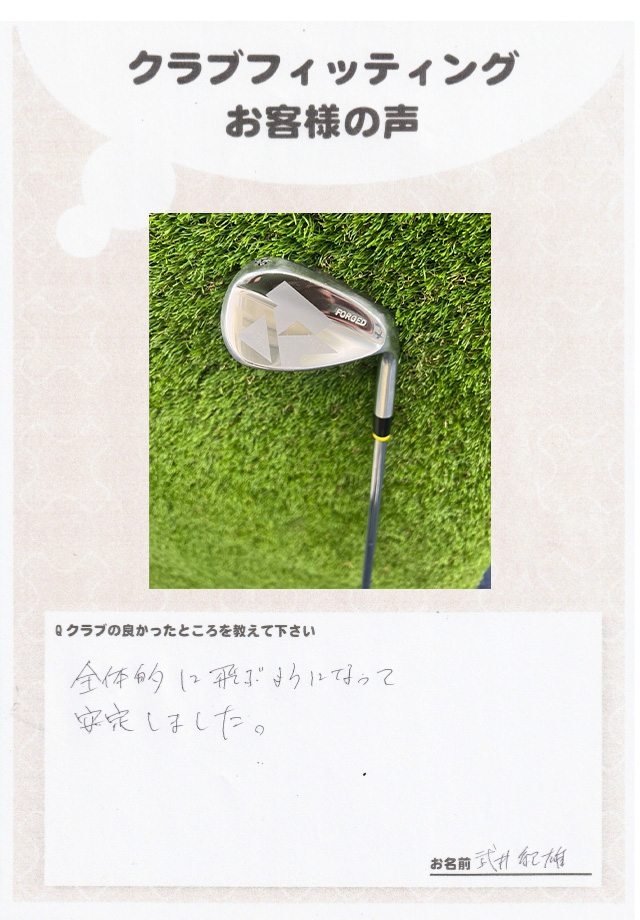 クラブフィッティング
お客様の声
FORGED
Q クラブの良かったところを教えて下さい
全体的に飛ぶようになって
安定しました。
お名前 武井 紀雄